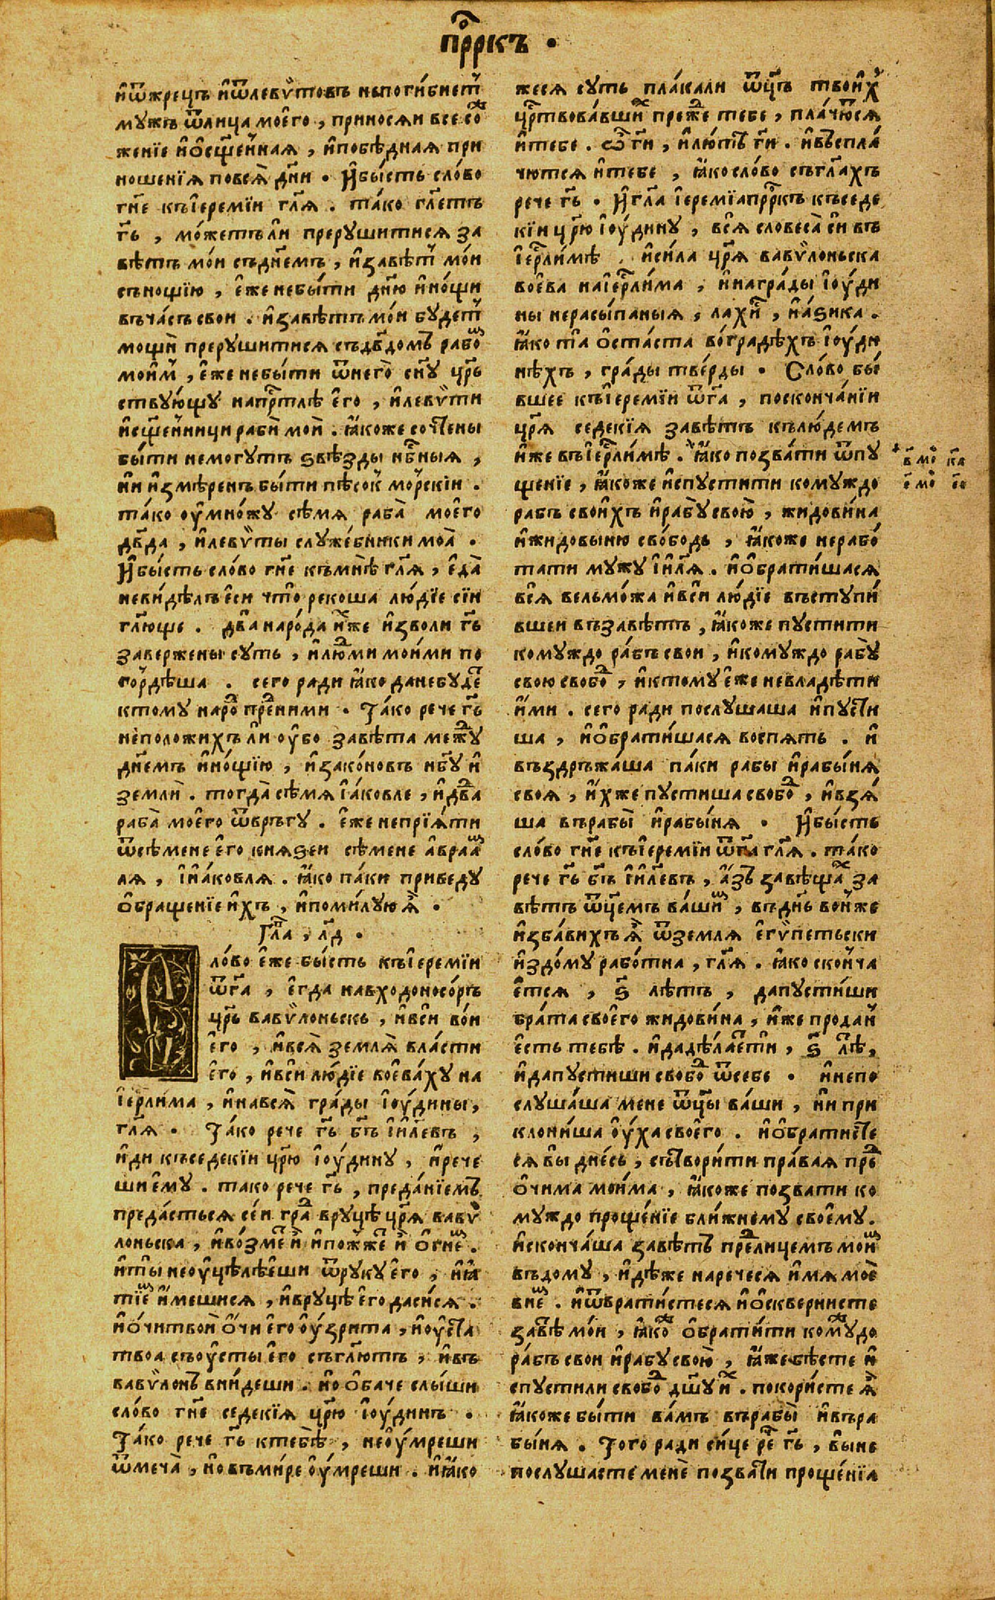 прⷪ҇ркъ ·
иѿжрецъ иѿлевѵтовъ непогибнет
мужъ ѿлица моего , приносяи все со
женїе иѻсщенная , ипобѣдная при
ношенїя повсѧ дн҃и · Ибысть слово
гн҃е къїеремїи гл҃ѧ . тако гл҃етъ
гь҃ , можетъли прерушитися за
вѣтъ мои съднемъ , изавѣт мои
съношїю , еже небыти дн҃ю инощи
въчасъ свои . изавѣтъ мои будет
мощи прерушитися съдв҃домъ рабо
моим , еже небыти ѿнего сн҃у црь҃
ствующу напр҃тлѣ его , илевѵти
исщ҃енници раби мои . ꙗкоже сочтены
быти немогутъ ѕвѣзды нб҃ныя ,
ни измѣренъ быти пѣсок морскїи .
тако оумножу сѣмя раба моего
дв҃да , илевѵты служебники моа .
Ибысть слово гн҃е къмнѣ гл҃ѧ , еда
невидѣлъ еси что рекоша людїе сїи
гл҃юще . два народа иже изволи гь҃
завержены суть , илюми моими по
гордѣша . сего ради ꙗко данебуде
ктому наро пр҃еними . Тако рече гь҃
неположихъ ли оубо завѣта межу
днемъ инощїю , изаконовъ нб҃у и
земли . тогда сѣмя їаковле , идв҃да
раба моего ѿвръгу . еже непрїяти
ѿсѣмене его князеи сѣмене авраа
ля , їиаковля . ꙗко паки приведу
ѻбращенїе ихъ , ипомилую ѧ ·
Гла҃ , л҃д ·
лово еже бысть къїеремїи
ѿг҃а , егда навходоносоръ
црь҃ вавѵлоньскъ , ивси вои
его , ивсѧ землѧ власти
его , ивси людїе воеваху на
їер҃лима , инавсѧ грады їоудины ,
гл҃ѧ . Тако рече гь҃ бг҃ъ їил҃евъ ,
иди къседекїи цр҃ю їоудину , ирече
ши ему . тако рече гь҃ , преданїемъ
предастьсѧ сеи гра вруцѣ цр҃ѧ вавѵ
лоньска , ивозме и ипожже и ѻгне .
иты неоуцѣлѣеши ѿруку его , иꙗ
тїе имешися , ивруцѣ его дасися .
иѻчи твои ѻчи его оузрита , иоуста
твоа съоусты его съгл҃ютъ , ивъ
вавѵлонъ внидеши . но ѻбаче слыши
слово гн҃е седекїя цр҃ю їоудинъ .
Тако рече гь҃ ктебѣ , неоумреши
ѿмеча , но въмире оумреши . иꙗко
жеся суть плакали ѿц҃ъ твоих
цр҃твовавших преже тебе , плачюся
итебе . ѽ гн҃и , илютѣ гн҃и . ивъспла
чютсѧ итебе , ꙗко слово съгл҃ахъ
рече гь҃ . Игл҃а їеремїа прⷪ҇ркъ къседе
кїи цр҃ю їоудину , всѧ словеса сїи въ
їер҃лимѣ . исила цр҃ѧ вавѵлоньска
воева наїер҃лима , инаграды їоуди
ны нерасыпаныя , лахи , иазика .
ꙗко та ѻстаста воградѣхъ їоуди
нѣхъ , грады тверды . Слово бы
вшее къїеремїи ѿг҃а , поскончанїи
цр҃ѧ седекїя завѣтъ кълюдемъ
иже въїер҃лимѣ . ꙗко позвати ѿпу
щенїе , ꙗкоже испустити комуждо
рабъ своихъ ирабу свою , жидовина
ижидовыню свободь , ꙗкоже нерабо
тати мужу їил҃ѧ . иѻбратишася
всѧ вельможа ивси людїе въступи
вшеи възавѣтъ , ꙗкоже пустити
комуждо рабъ свои , икомуждо рабу
свою свобо , иктому еже невладѣти
ими . сего ради послушаша ипусти
ша , иѻбратишася воспять . и
въздръжаша паки рабы ирабыня
своя , ихже пустиша свобо , ивзѧ
ша врабы ирабыня . Ибысть
слово гн҃е къїеремїи ѿг҃а гл҃ѧ . тако
рече гь҃ бг҃ъ їил҃евъ , азъ завѣща за
вѣтъ ѿц҃емъ ваши , въднь воиже
избавихъ ѧ ѿземля егѵпетьски
издому работна , гл҃ѧ . ꙗко сконча
ется , ѕ҃ лѣтъ , дапустиши
брата своего жидовина , иже продан
есть тебѣ . идадѣлаети , ѕ҃ лѣ ,
идапустиши свобо ѿсебе . инепо
слушаша мене ѿц҃ы ваши , ни при
клониша оуха своего . иѻбратисте
сѧ вы днесь , сътворити правая пре
ѻчима моима , ꙗкоже позвати ко
муждо прощенїе ближнему своему .
искончаша завѣтъ прелицемъ мои
въдому , идѣже наречеся имя мое
вне . иѿвратистеся иѻсквернисте
завѣ мои , ꙗко ѻбратити комудо
рабъ свои ирабу свою , ꙗже бѣсте и
спустили свобо дш҃у и . покористе ѧ
ꙗкоже быти вамъ врабы ивъра
быня . Того ради сице ре гь҃ , вы не
послушасте мене позвати прощенїя